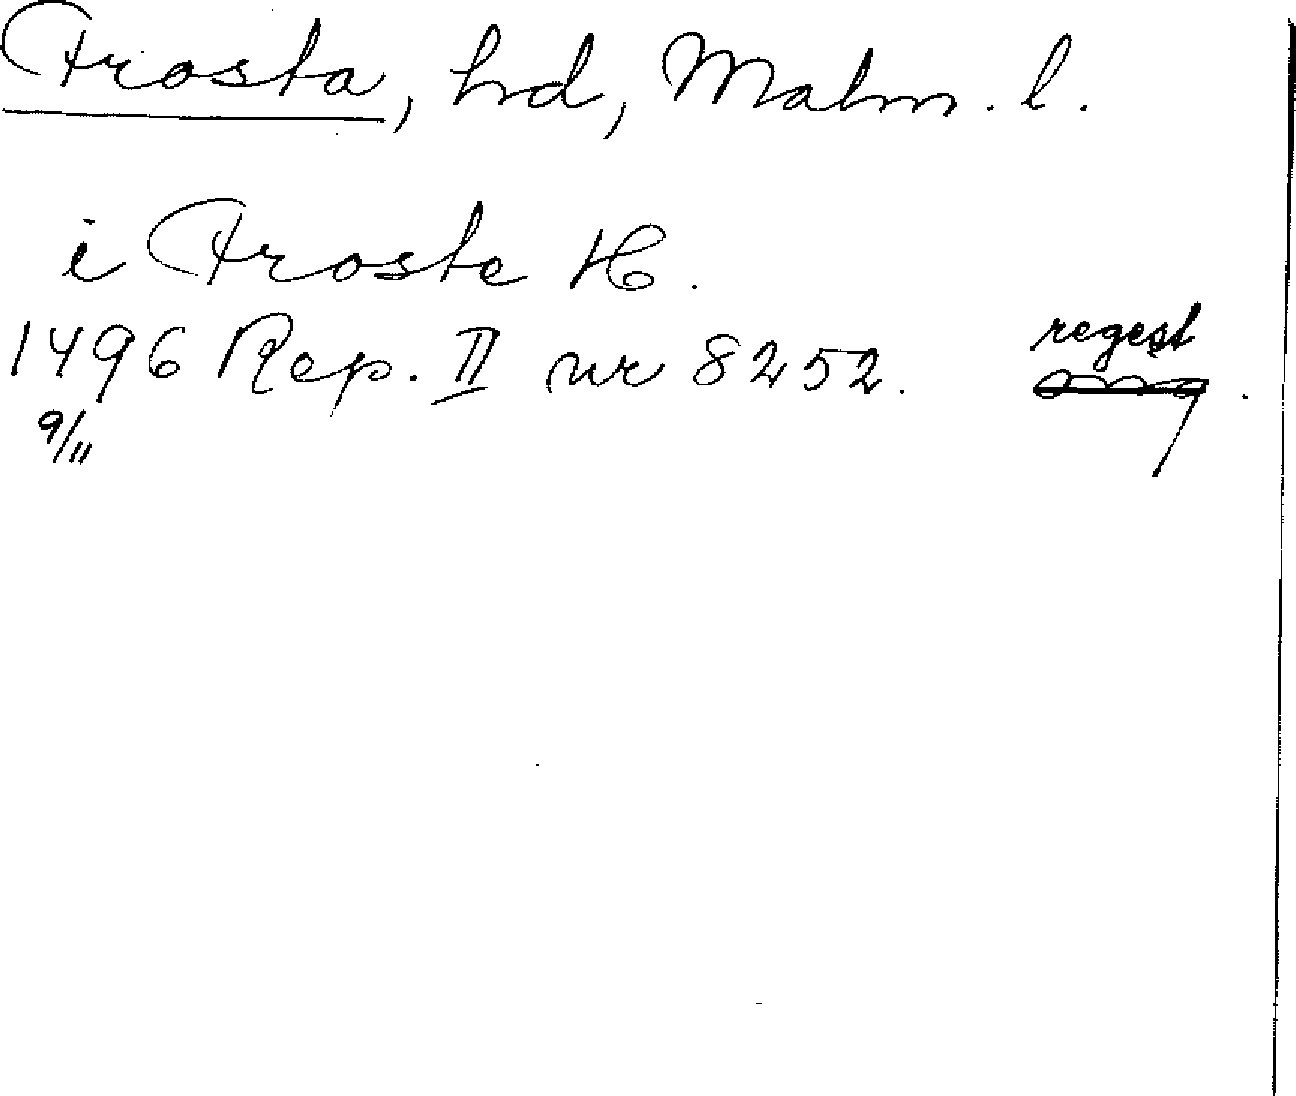 Frosta, hd, Malm. l.
i Froste H.
1496 Rep. II nr 8252. regest
9/11